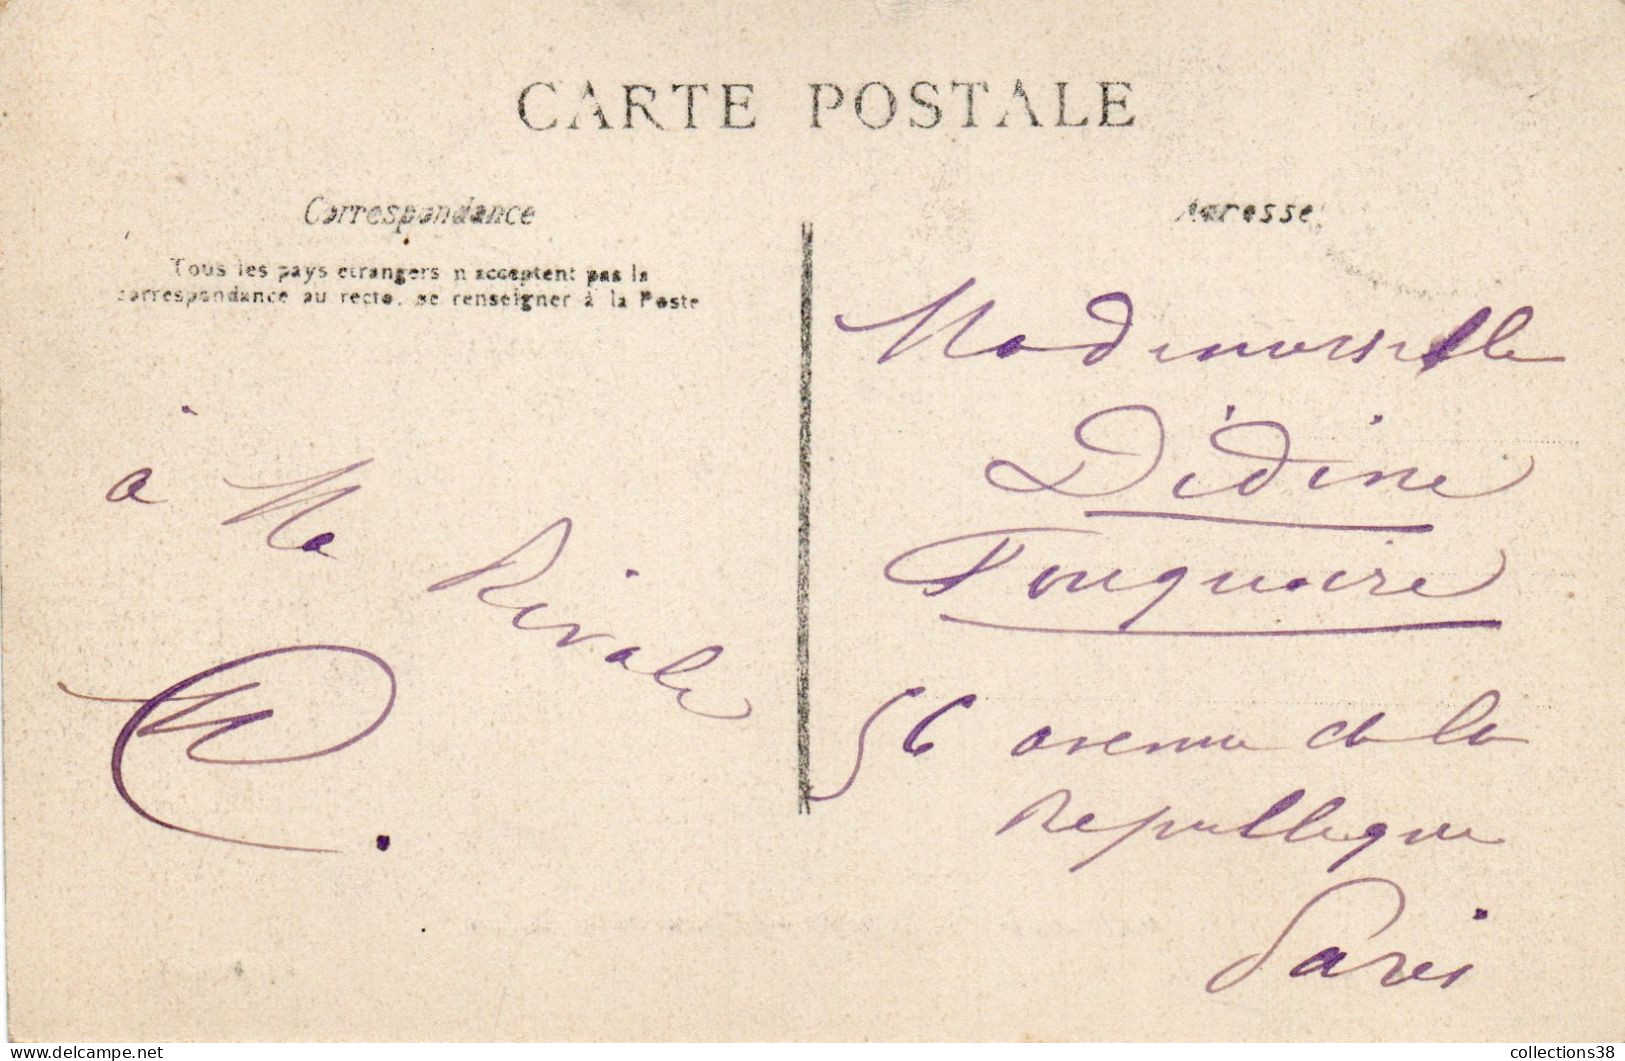 CARTE POSTALE
Correspondance
Tous les pays étrangers n'acceptent pas la
correspondance au recto, se renseigner à la Poste
à Ma
Rivale
M.
Adresse
Mademoiselle
Dédine
Fouquoire
56 avenue de la
Republique
Paris
collections38